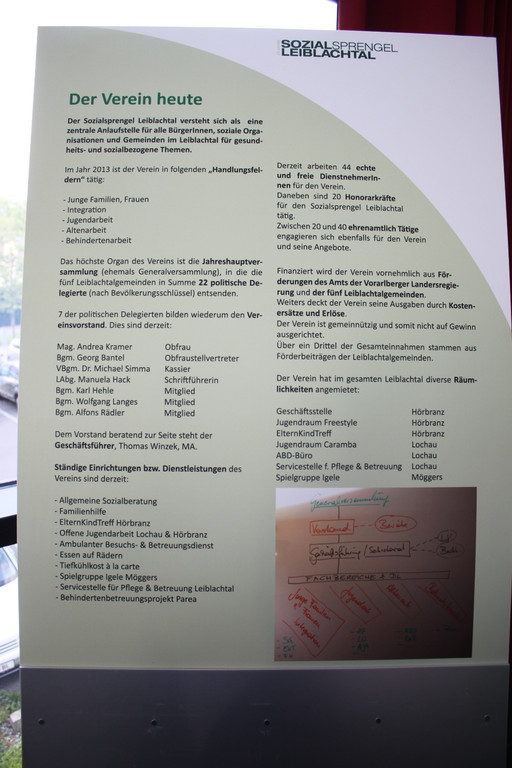 SOZIALSPRENGEL
LEIBLACHTAL
Der Verein heute
Der Sozialsprengel Leiblachtal versteht sich als eine
zentrale Anlaufstelle für alle BürgerInnen, soziale Orga-
nisationen und Gemeinden im Leiblachtal für gesund-
heits- und sozialbezogene Themen.
Im Jahr 2013 ist der Verein in folgenden „Handlungsfel-
dern" tätig:
- Junge Familien, Frauen
- Integration
- Jugendarbeit
- Altenarbeit
- Behindertenarbeit
Das höchste Organ des Vereins ist die Jahreshauptver-
sammlung (ehemals Generalversammlung), in die die
fünf Leiblachtalgemeinden in Summe 22 politische De-
legierte (nach Bevölkerungsschlüssel) entsenden.
7 der politischen Delegierten bilden wiederum den Ver-
einsvorstand. Dies sind derzeit:
Mag. Andrea Kramer Obfrau
Bgm. Georg Bantel Obfraustellvertreter
VBgm. Dr. Michael Simma Kassier
LAbg. Manuela Hack Schriftführerin
Bgm. Karl Hehle Mitglied
Bgm. Wolfgang Langes Mitglied
Bgm. Alfons Rädler Mitglied
Dem Vorstand beratend zur Seite steht der
Geschäftsführer, Thomas Winzek, MA.
Ständige Einrichtungen bzw. Dienstleistungen des
Vereins sind derzeit:
- Allgemeine Sozialberatung
- Familienhilfe
- ElternKindTreff Hörbranz
- Offene Jugendarbeit Lochau & Hörbranz
- Ambulanter Besuchs- & Betreuungsdienst
- Essen auf Rädern
- Tiefkühlkost à la carte
- Spielgruppe Igele Möggers
- Servicestelle für Pflege & Betreuung Leiblachtal
- Behindertenbetreuungsprojekt Parea
Derzeit arbeiten 44 echte
und freie DienstnehmerIn-
nen für den Verein.
Daneben sind 20 Honorarkräfte
für den Sozialsprengel Leiblachtal
tätig.
Zwischen 20 und 40 ehrenamtlich Tätige
engagieren sich ebenfalls für den Verein
und seine Angebote.
Finanziert wird der Verein vornehmlich aus För-
derungen des Amts der Vorarlberger Landesregie-
rung und der fünf Leiblachtalgemeinden.
Weiters deckt der Verein seine Ausgaben durch Kosten-
ersätze und Erlöse.
Der Verein ist gemeinnützig und somit nicht auf Gewinn
ausgerichtet.
Über ein Drittel der Gesamteinnahmen stammen aus
Förderbeiträgen der Leiblachtalgemeinden.
Der Verein hat im gesamten Leiblachtal diverse Räum-
lichkeiten angemietet:
Geschäftsstelle Hörbranz
Jugendraum Freestyle Hörbranz
ElternKindTreff Hörbranz
Jugendraum Caramba Lochau
ABD-Büro Lochau
Servicestelle f. Pflege & Betreuung Lochau
Spielgruppe Igele Möggers
Generalversammlung
Vorstand
Geschäftsführung / Sekretariat
FACHBEREICHE